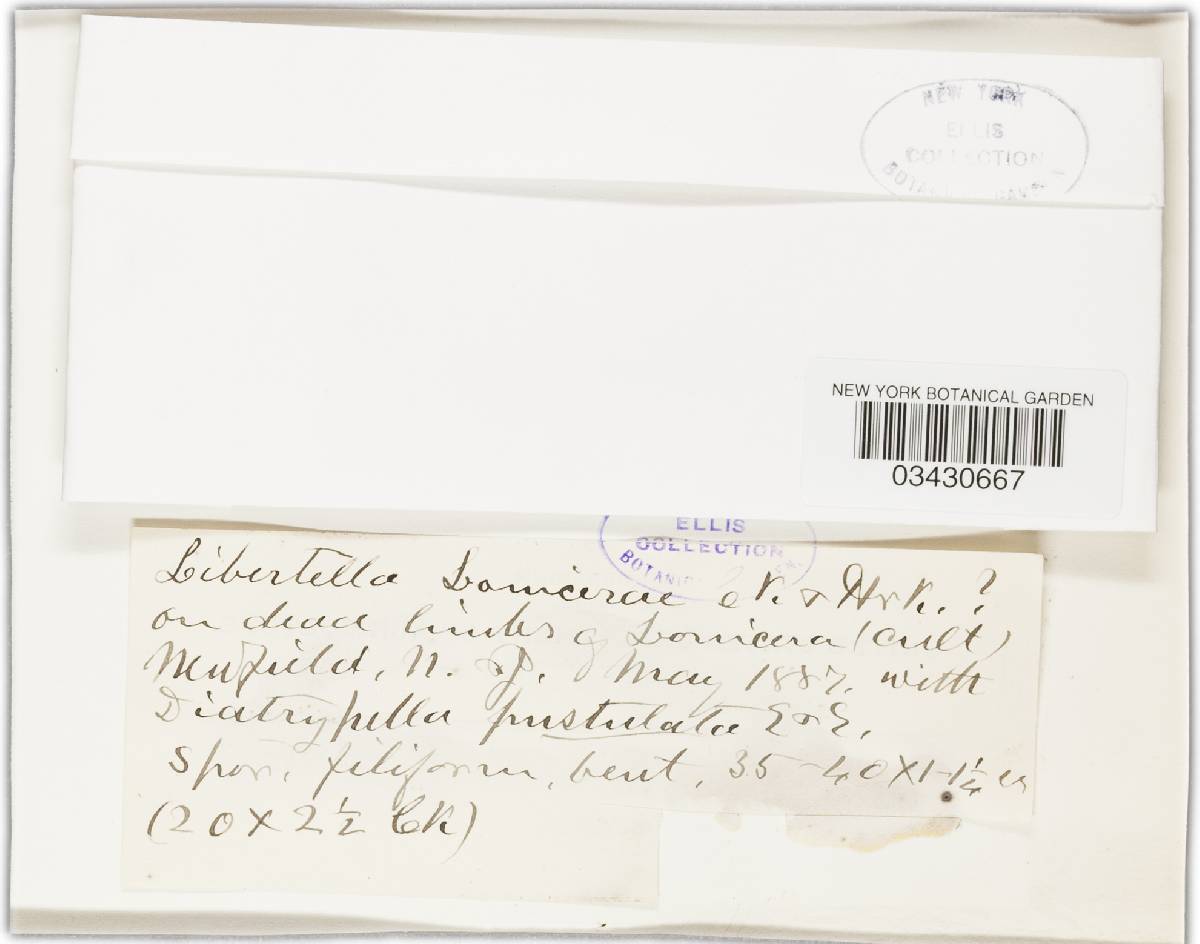 NEW YORK
ELLIS
COLLECTION
NEW YORK BOTANICAL GARDEN
03430667
ELLIS
COLLECTION
Libertella Lonicerae CK. & Hrk. ?
on dead limbs of Lonicera (cult)
Newfield, N. J. May 1887. with
Diatrypella pustulata E & E.
Spor. filiform, bent, 35-40X1-1¼ u
(20 X 2½ CK)